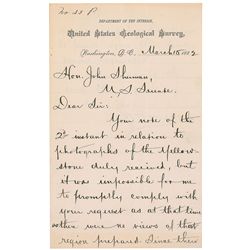 No 33 P
DEPARTMENT OF THE INTERIOR,
United States Geological Survey,
Washington, D.C. March 15 1882
Hon. John Sherman,
U S Senate.
Dear Sir:
Your note of the
2d instant in relation to
photographs of the Yellow-
stone duly received, but
it was impossible for me
to promptly comply with
your request as at that time
there were no views of that
region prepared. Since then